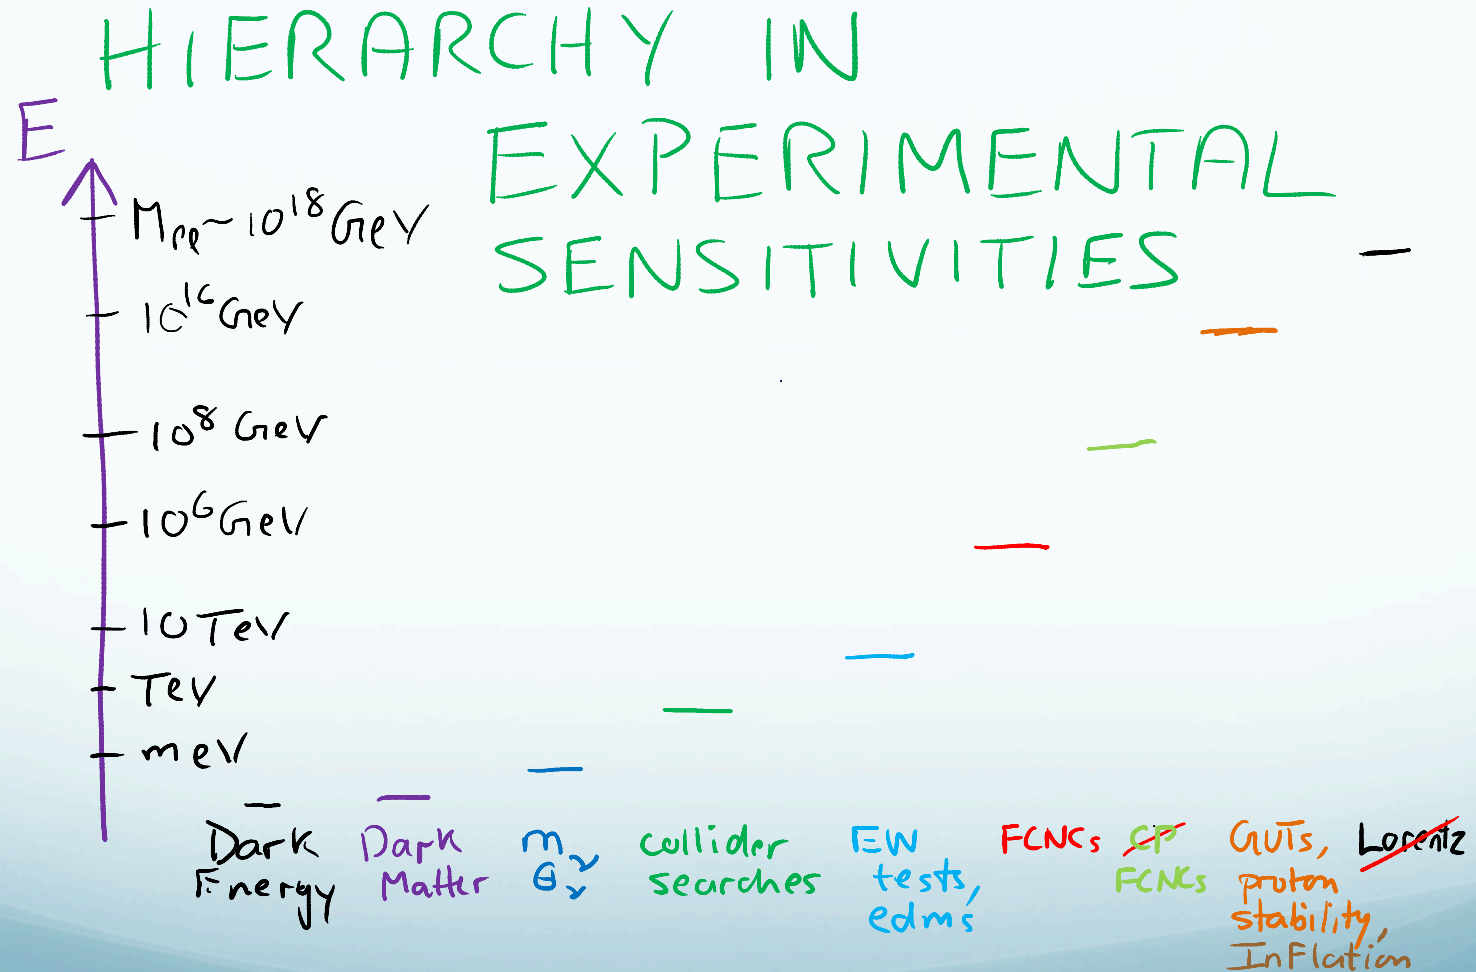 HIERARCHY IN
EXPERIMENTAL
SENSITIVITIES
E
Mpl ~ 10^18 GeV
10^16 GeV
10^8 GeV
10^6 GeV
10 TeV
TeV
meV
Dark
Energy
Dark
Matter
mν
θν
collider
searches
EW
tests,
edms
FCNCs
CP
FCNCs
GUTs,
proton
stability,
InFlation
Lorentz